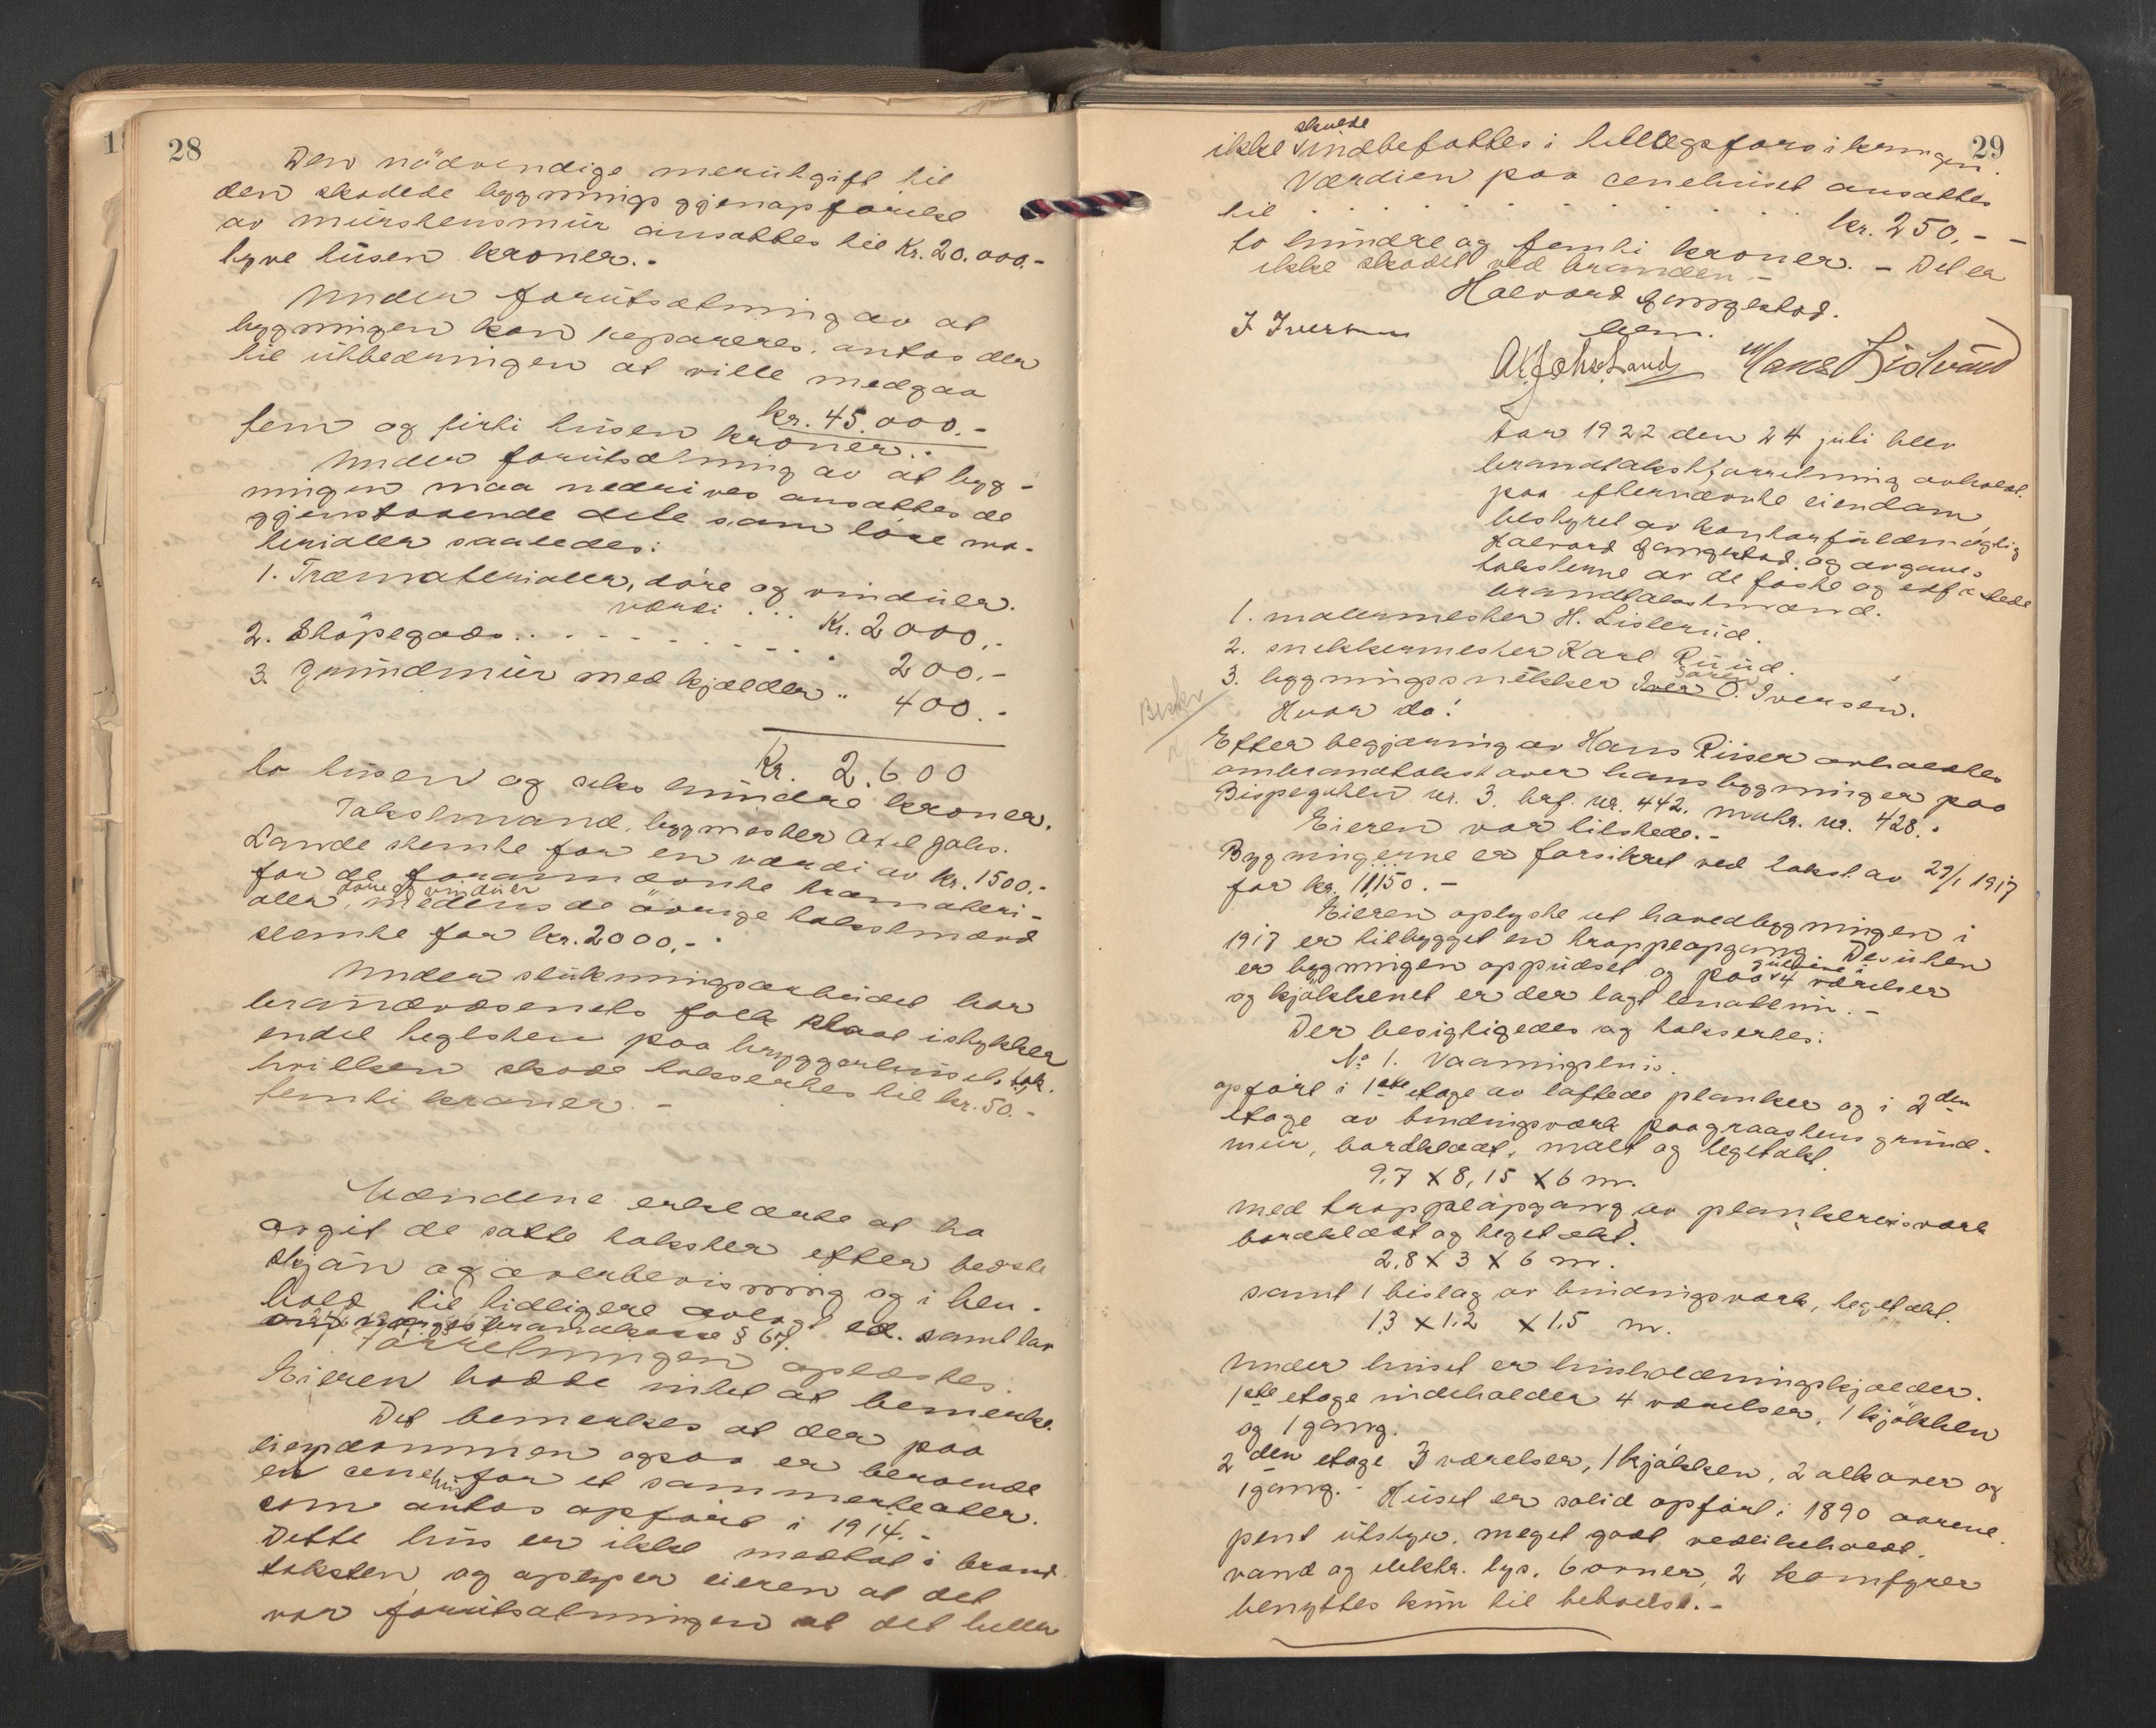 28
Den nödvendige merutgift til
den skadede bygnings gjenopförelse
av murstensmur ansattes til Kr. 20.000.-
tyve tusen kroner.-
Under forutsætning av at
bygningen kan repareres, antas der
til utbedringen at ville medgaa
kr. 45.000.-
fem og firti tusen kroner.-
Under forutsætning av at byg-
ningen maa nedrives ansattes de
gjenstaaende dele som löse ma-
terialer saaledes:
1. Træmaterialer, döre og vinduer.
værdi ... Kr. 2000.-
2. Stöpegods . . - - - - - - 200.-
3. Grundmur med kjælder " 400.-
Kr. 2.600
to tusen og seks hundre kroner.
Takstmand, bygmester Axel Johs.
Lande stemte for en værdi av kr. 1500.-
for de forannævnte træmateri-
döre og vinduer
aler, medens de övrige takstmænd
stemte for kr. 2000.-
Under slukningsarbeidet har
brandvæsenets folk slaat istykker
endel teglsten paa bryggerhusets tak.
hvilken skade taksertes til kr. 50.-
femti kroner.-
Mændene erklærte at ha
avgit de satte takster efter bedste
skjön og overbevisning og i hen-
hold til tidligere avlagt ed. samt lov
om Norges brandkasse § 67.
Forretningen oplæstes.
Eieren hadde intet at bemerke.
Det bemerkes at der paa
eiendommen ogsaa er beroende
en scenehus for et sommerteater.
som antas opfört i 1914.-
Dette hus er ikke medtat i brand
taksten og oplyser eieren at det
var forutsætningen at det heller
29
skulde
ikke indbefattes i tillægsforsikringen.
Værdien paa scenehuset ansattes
til . . . . . . . . . . . kr. 250,- -
to hundre og femti kroner. - Det er
ikke skadet ved branden.-
Halvord Gangestad.
J Iversen Lem.
A. Johs. Lande Hans Lidtvand
Aar 1922 den 24 juli blev
brandtakstforretning avholdt
paa efternævnte eiendom,
bestyret av kontorfuldmægtig
Halvord Gangestad, og avgaves
taksterne av de faste og edfæstede
brandtakstmænd.
1. malermester H. Listerud.
2. snekkermester Karl Ruud.
Sören
3. bygningssnekker Iver O. Iversen.
Hvor da!
Efter begjæring av Hans Riiser avholdtes
ombrandtakst over hans bygninger paa
Bispegaten nr. 3. brf. nr. 442. matr. nr. 428.-
Eieren var tilstede.-
Bygningerne er forsikret ved takst av 29/1 1917
for kr. 11,150.-
Eieren oplyste at hovedbygningen i
1917 er tilbygget en trappeopgang. Desuten
gulvene i
er bygningen oppudset og paa 4 værelser
og kjökkenet er der lagt linoleum.-
Der besigtigedes og taksertes:
No 1. Vaaningshus.
opfört i 1ste etage av laftede planker og i 2den
etage av bindingsverk paa graastens grund-
mur, bordklædt, malt og teglstakt.
9,7 X 8,15 X 6 m.
med trappeopgang av plankereisverk
bordklædt og teglstækt.
2,8 X 3 X 6 m.
samt 1 bislag av bindingsverk, teglstækt.
1,3 X 1,2 X 1,5 m.
Under huset er husholdningskjælder.
1ste etage indeholder 4 værelser, 1 kjökken
og 1 gang.
2den etage 3 værelser, 1 kjökken, 2 alkover og
1 gang.- Huset er solid opfört i 1890 aarene.
pent utstyr, meget godt vedlikeholdt.
vand og elektr. lys. 6 ovner, 2 komfyrer
benyttes kun til beboelse.-